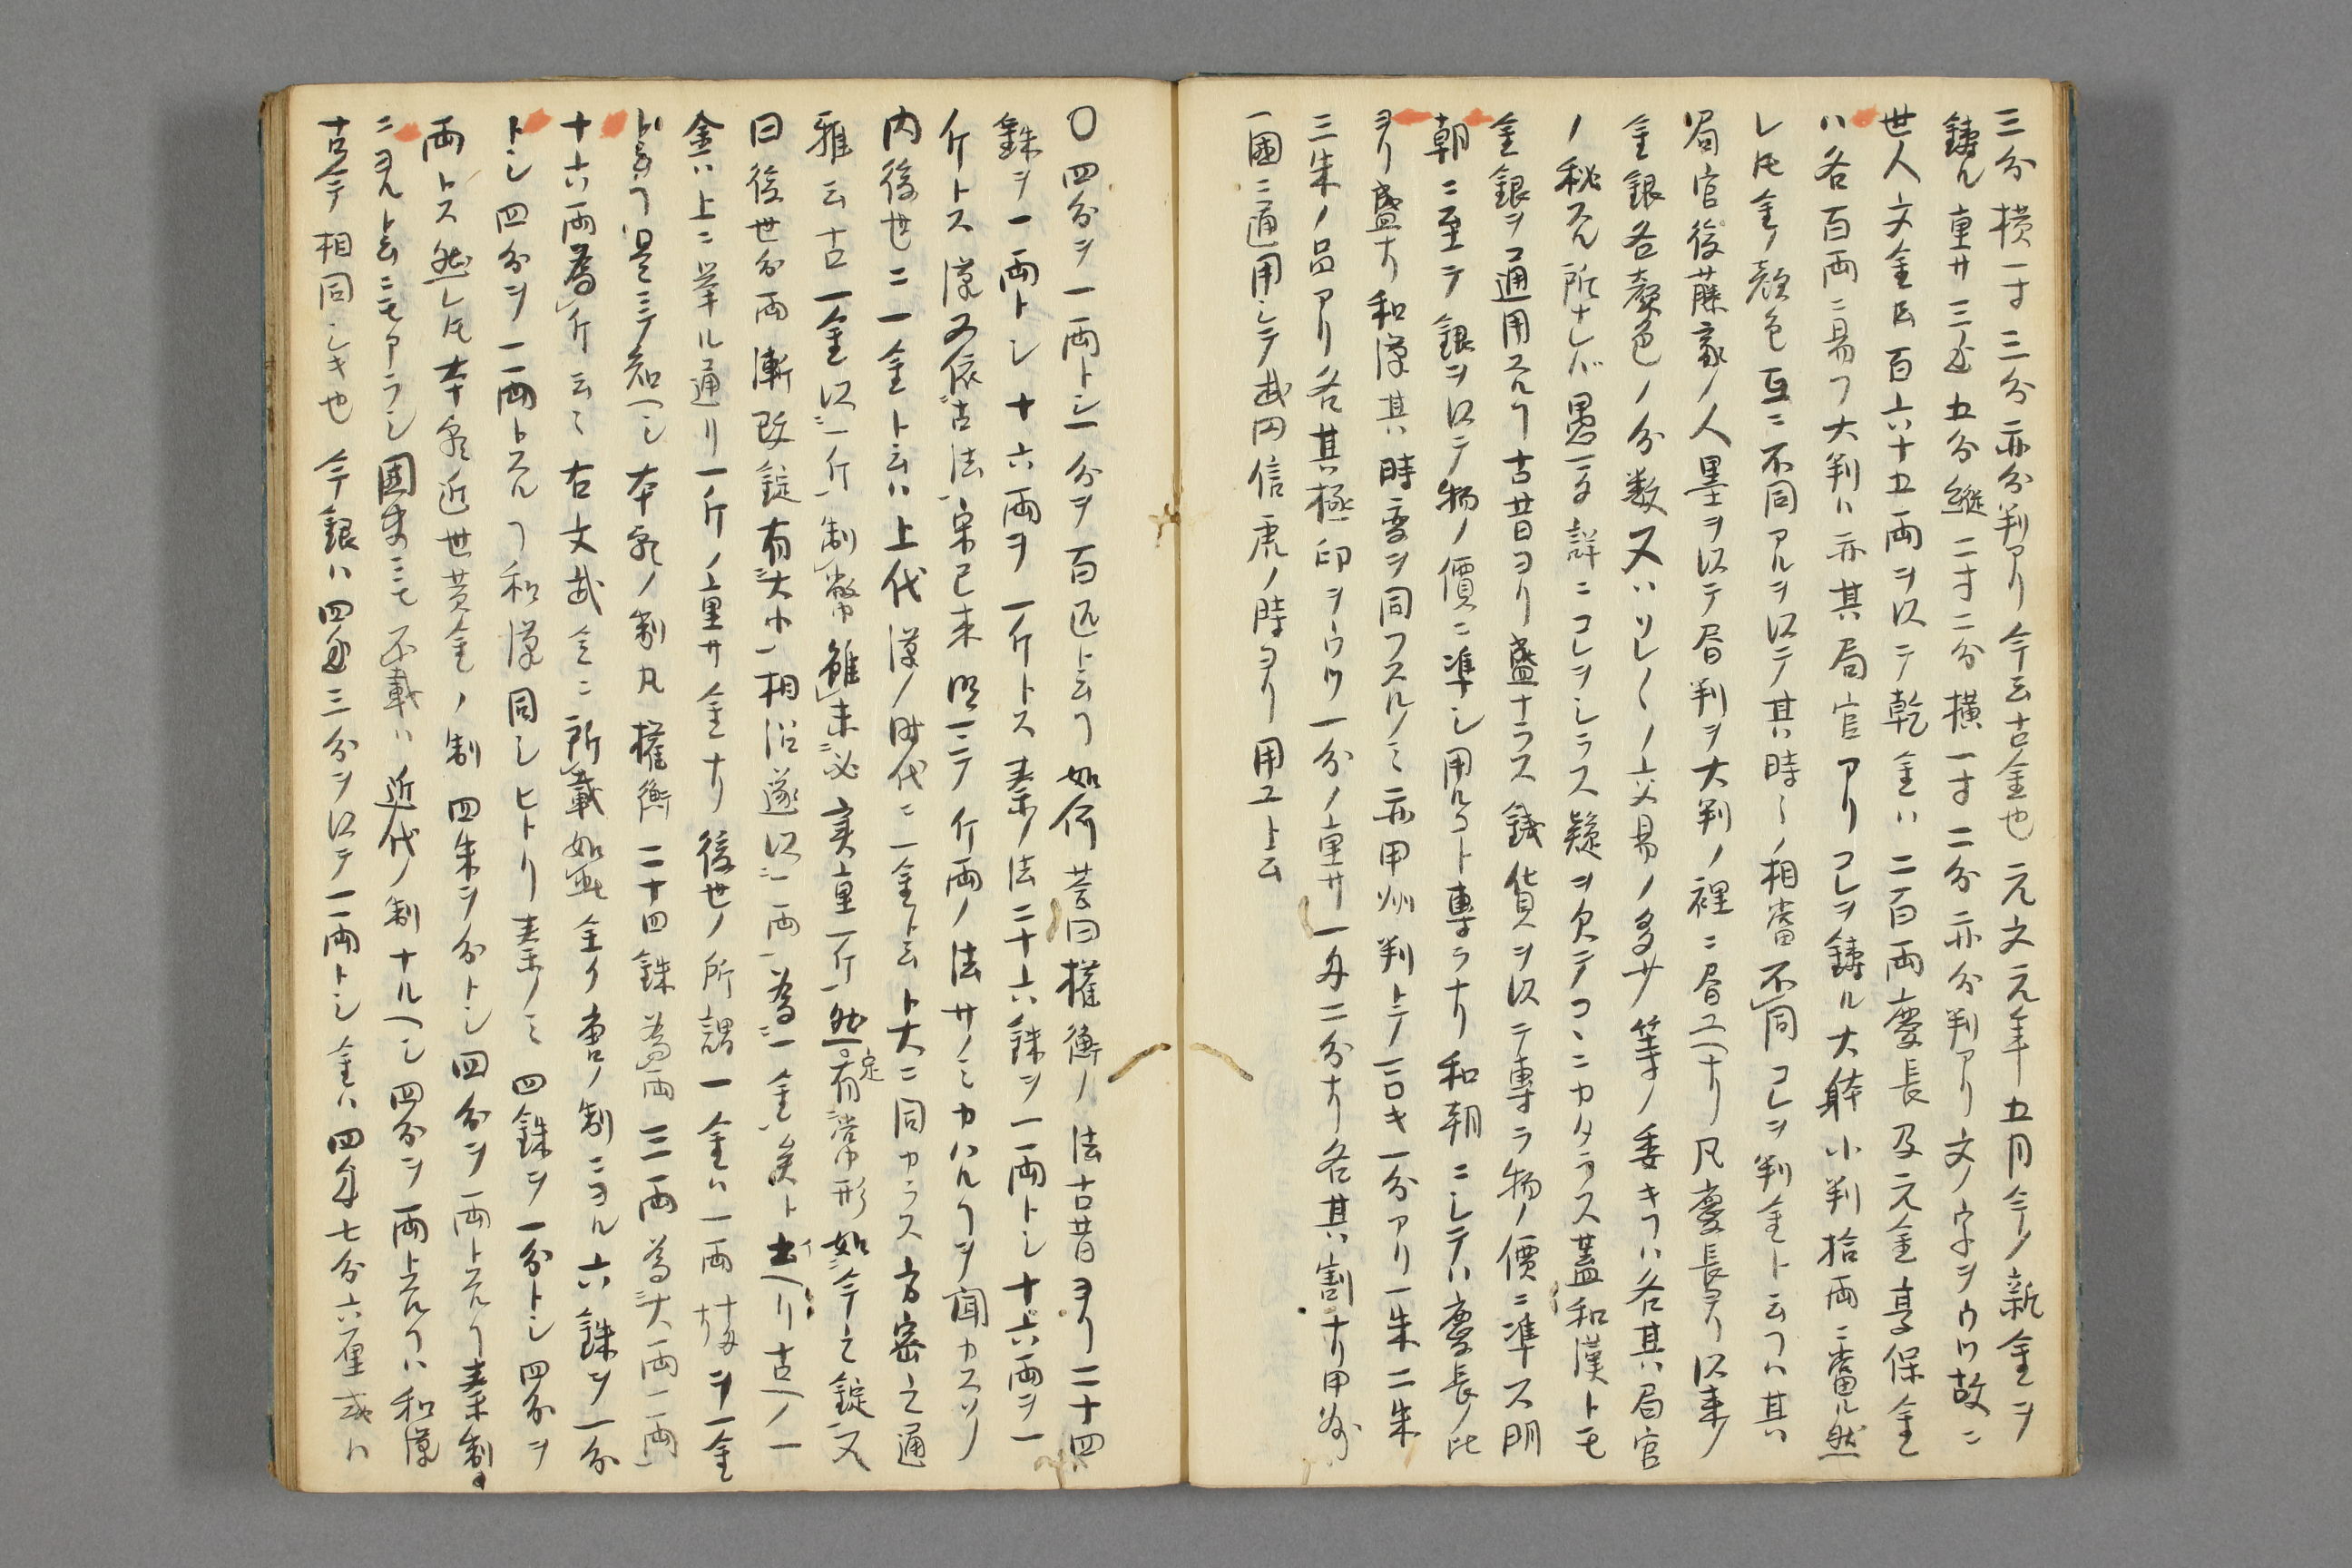 三分横一寸三分亦分判アリ今云古金也元文元年五月今ノ新金ヲ
鋳ル重サ三匁五分縦二寸二分横一寸二分亦分判アリ文ノ字ヲウツ故ニ
世人文金ト云百六十五両ヲ以テ乾金ハ二百両慶長及元金享保金
ハ各百両ニ易フ大判ハ亦其局官アリコレヲ鋳ル大躰小判拾両ニ當ル然
レ𪜈金ノ顔色互ニ不同アルヲ以テ其時々ノ相當不同コレヲ判金ト云フハ其
局官後藤家ノ人墨ヲ以テ局判ヲ大判ノ裡ニ居ユヘナリ凡慶長ヨリ以来ノ
金銀各顔色ノ分数又ハソレ〱ノ交易ノ多少等ノ委キヿハ各其局官
ノ秘スル所ナレバ愚一々詳ニコレヲシラス疑ヲ欠テコヽニカタラス蓋和漢トモ
金銀ヲ通用スルヿ古昔ヨリ盛ナラス銭貨ヲ以テ専ラ物ノ價ニ準ス明
朝ニ至テ銀ヲ以テ物ノ價ニ準シ用ルコト専ラナリ和朝ニシテハ慶長ノ比
ヨリ盛ナリ和漢其時変ヲ同フスルノミ亦甲州判トテ一円キ一分アリ一朱二朱
三朱ノ品アリ各其極印ヲウツ一分ノ重サ一匁二分ナリ各其割ナリ甲州
一國ニ通用シテ武田信虎ノ時ヨリ用ユト云
〇四分ヲ一両トシ一分ヲ百疋ト云フ如何荅曰權衡ノ法古昔ヨリ二十四
銖ヲ一両トシ十六両ヲ一斤トス秦ノ法二十六銖ヲ一両トシ十六両ヲ一
斤トス漢又依古法宋已来明ニテ斤両ノ法サノミカハルヿヲ聞カスソノ
内後世ニ一金ト云ハ上代漢ノ時代ニ一金ト云ト大ニ同カラス方密之通
雅云古一金以一斤制幣雖未必実重一斤然有定常形如今之錠又
曰後世分両漸改錠有大小相沿遂以一両為一金矣ト云ヘリ古ヘノ一
金ハ上ニ挙ル通リ一斤ノ重サ金ナリ後世ノ所謂一金ハ一両ナリ拾匁ヲ一金
ト云フ是ニテ知ヘシ本朝ノ制凡權衡二十四銖為両三両為大両一両
十六両為斤云々右文武令ニ所載如此全ク唐ノ制ニヨル六銖ヲ一分
トシ四分ヲ一両トスルヿ和漢同シヒトリ秦ノミ四銖ヲ一分トシ四分ヲ
両トス然レ𪜈本朝近世黄金ノ制四朱ヲ分トシ四分ヲ両トスルヿ秦制
ニヨルト云ニモアラシ國史ニモ不載ハ近代ノ制ナルヘシ四分ヲ両トスルヿハ和漢
古今相同シキ也今銀ハ四匁三分ヲ以テ一両トシ金ハ四匁七分六厘或ハ